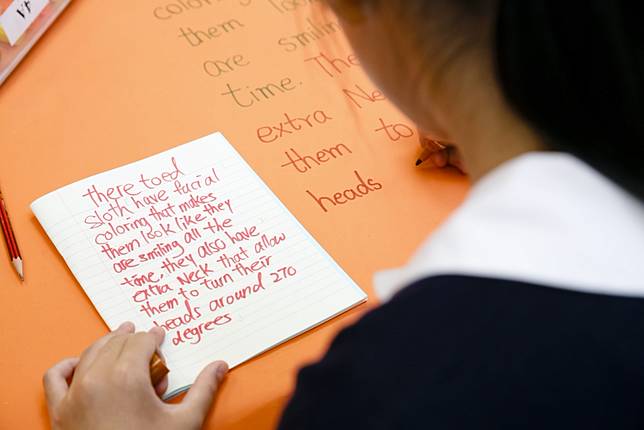 there toed
sloth have facial
coloring that makes
them look like they
are smiling all the
time, they also have
extra Neck that allow
them to turn their
heads around 270
degrees
them
are smiling
time. The
extra Ne
them to
heads